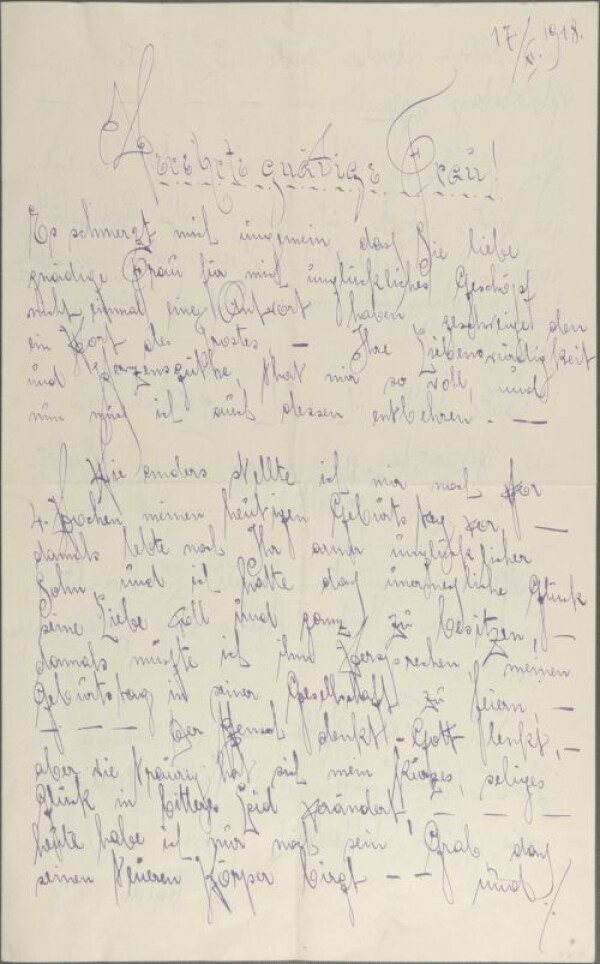 17/XI. 1918.
Verehrte gnädige Frau!
Es schmerzt mich ungemein, das Sie liebe
gnädige Frau für mich unglückliches Geschöpf
nicht einmal eine Antwort haben geschweige den
ein Wort des Trostes, — Ihre Liebenswürdigkeit
und Herzensgüthe, that mir so wohl, und
nun muß ich auch dessen entbehren. —
Wie anders stellte ich mir noch vor
4. Wochen meinen heutigen Geburtstag vor, —
damals lebte noch Ihr armer unglücklicher
Sohn, und ich hatte das unermeßliche Glück
seine Liebe voll und ganz zu besitzen, —
damals mußte ich ihm versprechen, meinen
Geburtstag in seiner Gesellschaft zu feiern, —
— — — Der Mensch denkt - Gott lenkt, —
aber wie traurig hat sich mein kurzes, seliges
Glück in bitteres Leid verändert, — — — —
heute habe ich nur noch sein Grab das
seinen teueren Körper birgt — — und ./.